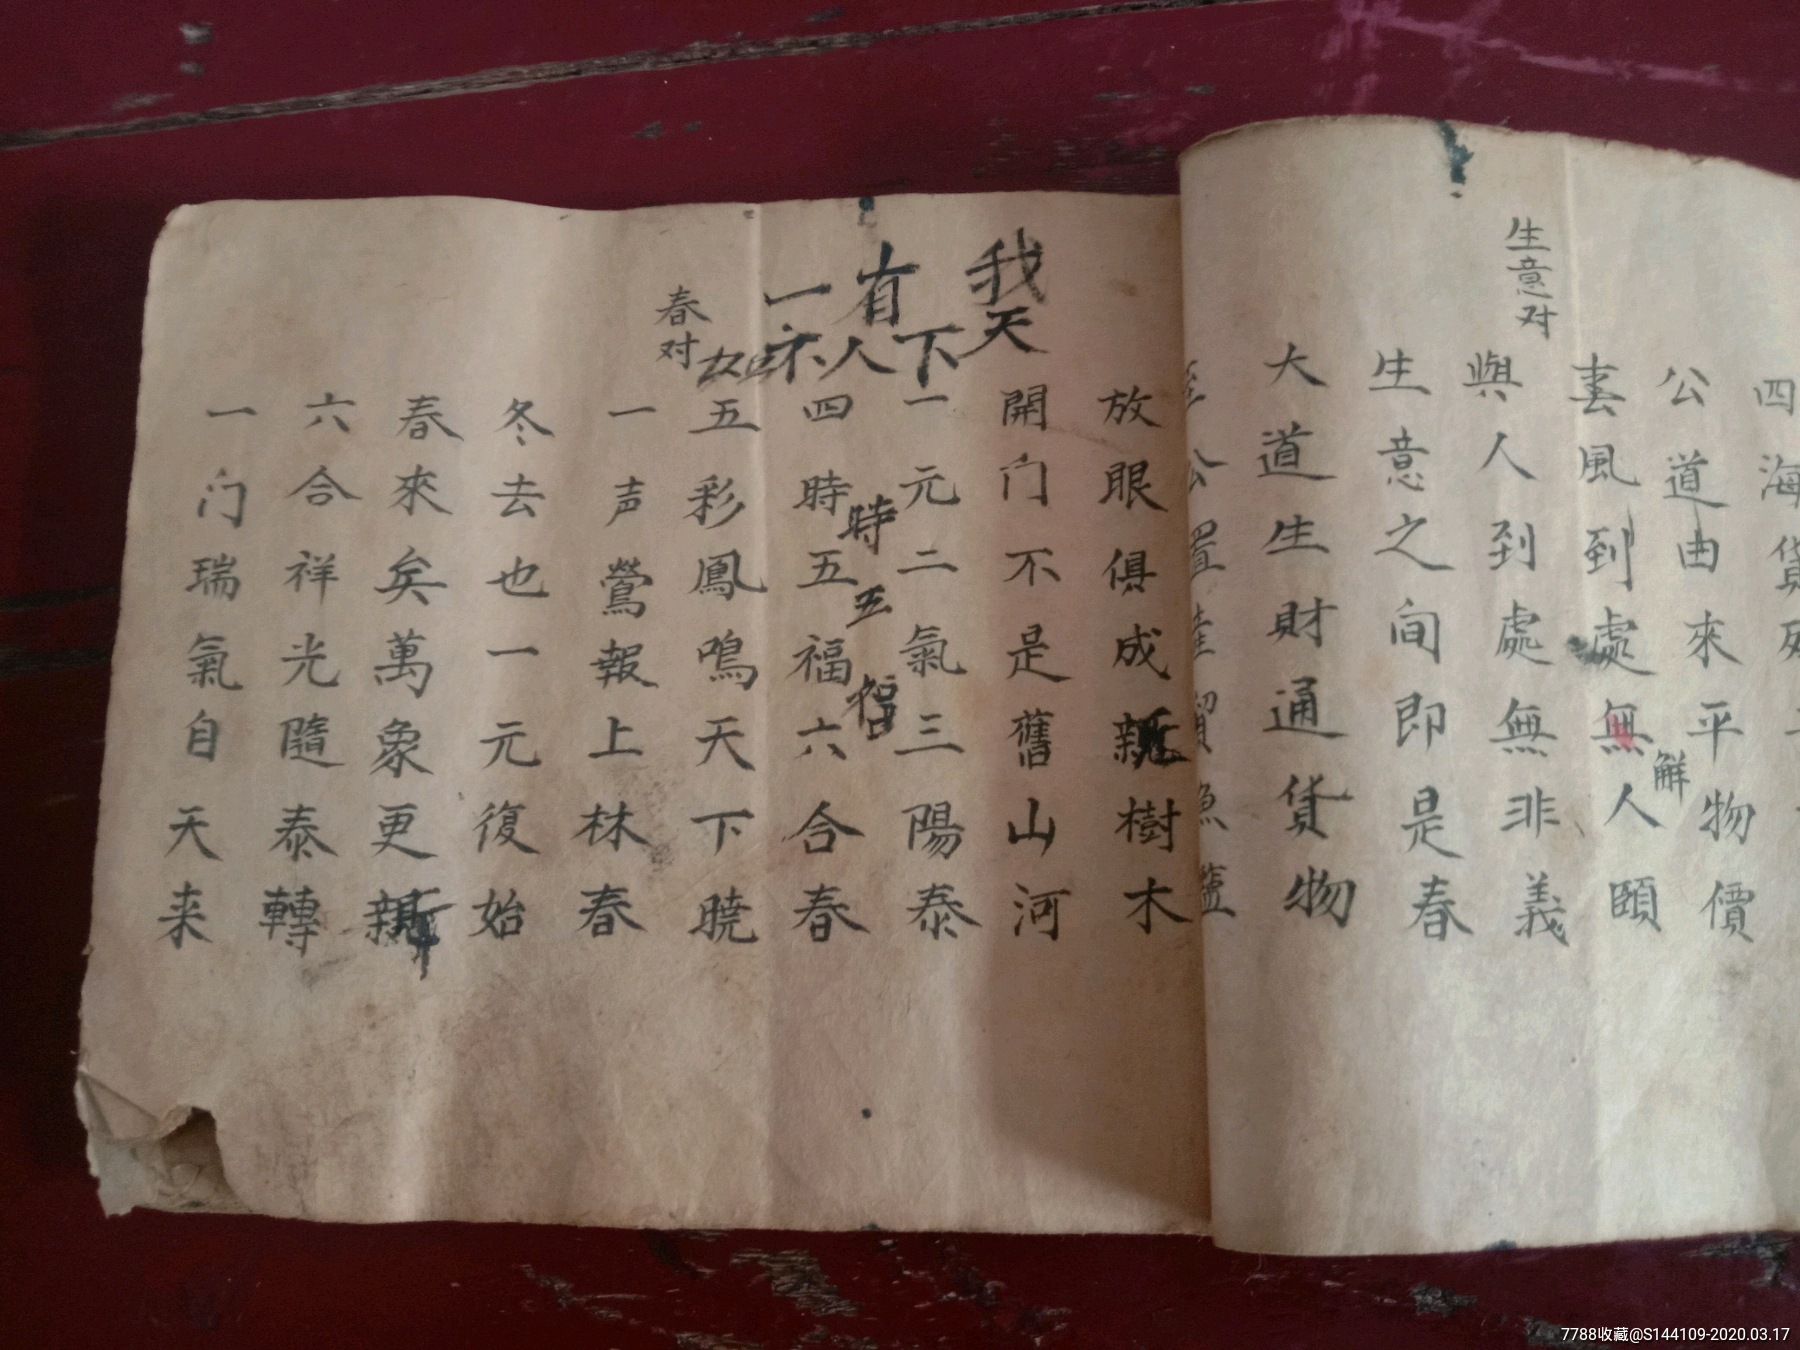 生意对
四海貨
公道由來平物價
春風到處無人頤
解
與人到處無非義
生意之间即是春
大道生財通貨物
放眼俱成新樹木
開门不是舊山河
我天
有下
一人
春对
一元二氣三陽泰
時五福
四時五福六合春
五彩鳳鳴天下曉
一声鶯報上林春
冬去也一元復始
春來矣萬象更新
六合祥光隨泰轉
一门瑞氣自天来
7788收藏@S144109-2020.03.17